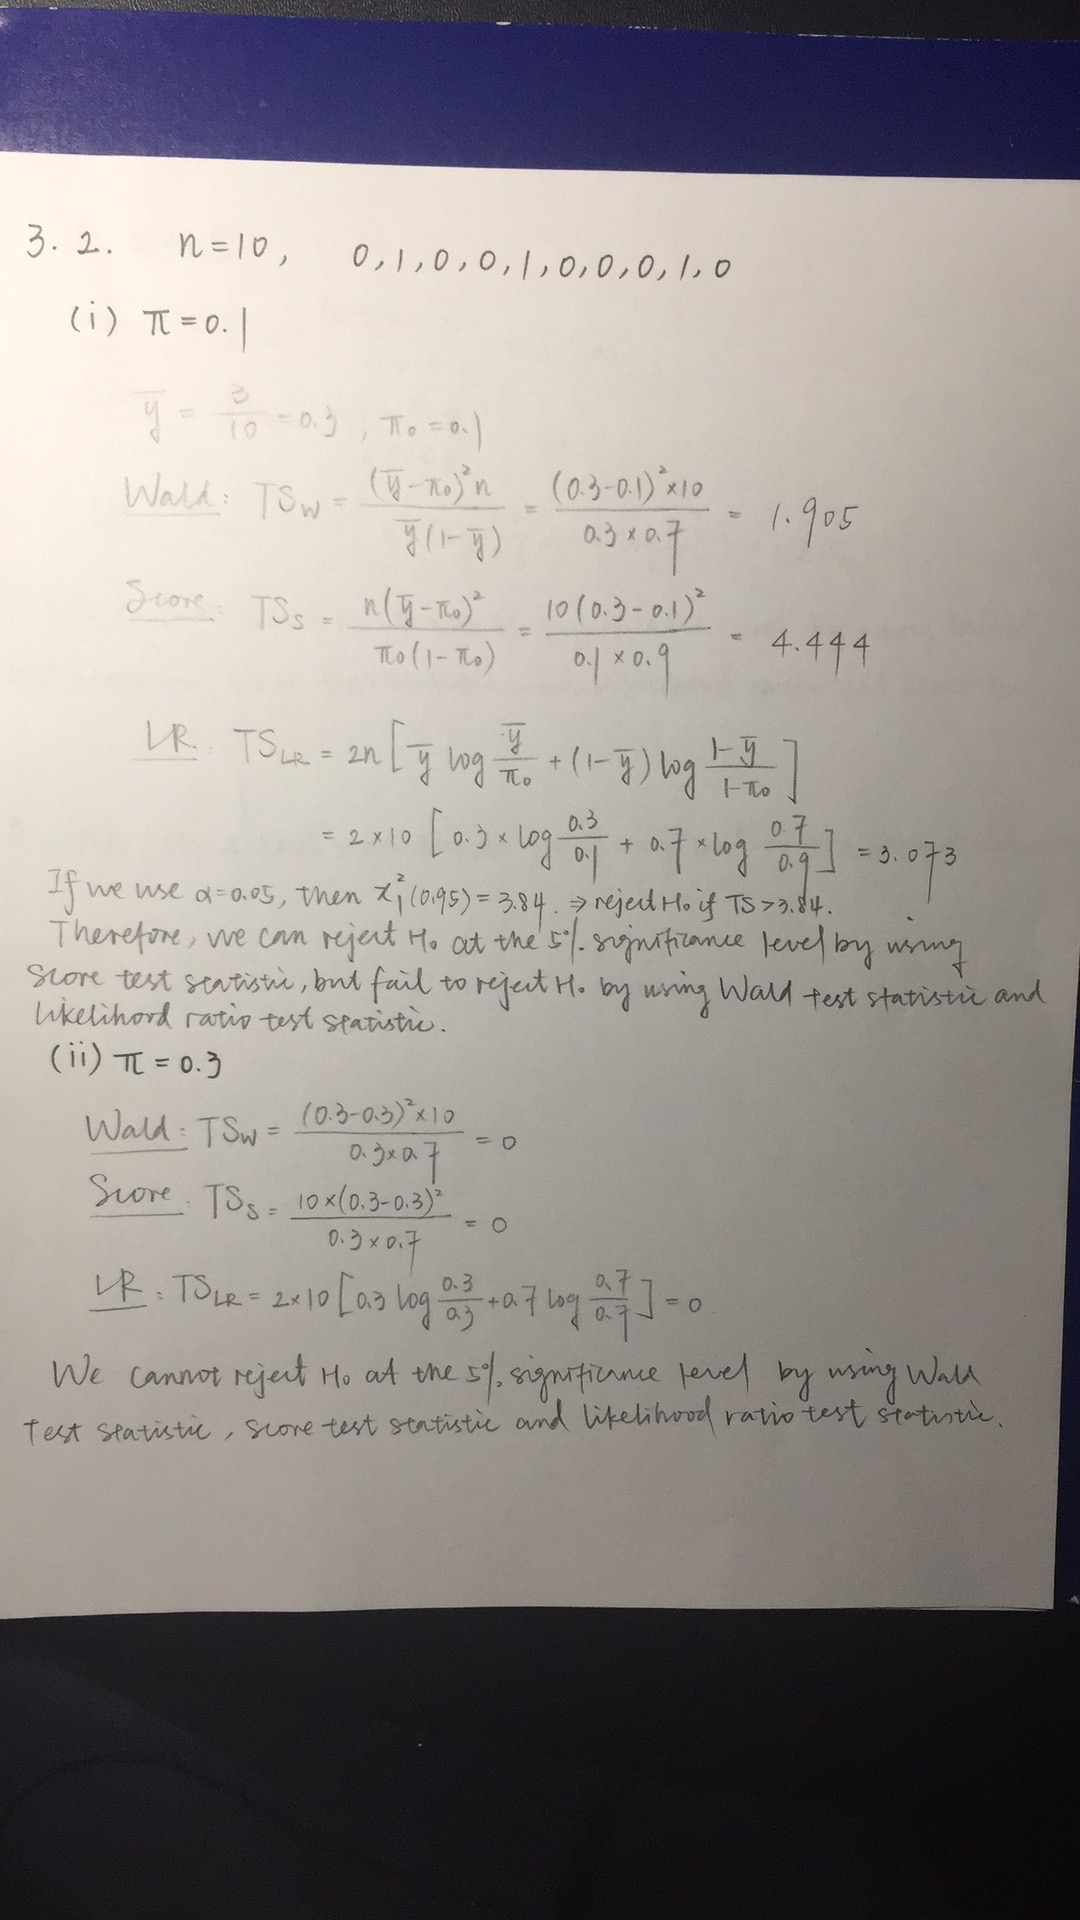 3.2. n=10, 0,1,0,0,1,0,0,0,1,0
(i) π=0.1
ȳ = 3/10 = 0.3, π₀ = 0.1
Wald: TS_W = (ȳ-π₀)²n / ȳ(1-ȳ) = (0.3-0.1)²×10 / 0.3×0.7 = 1.905
Score: TS_S = n(ȳ-π₀)² / π₀(1-π₀) = 10(0.3-0.1)² / 0.1×0.9 = 4.444
LR: TS_LR = 2n[ȳ log ȳ/π₀ + (1-ȳ) log (1-ȳ)/(1-π₀)]
= 2×10 [0.3×log 0.3/0.1 + 0.7×log 0.7/0.9] = 3.073
If we use α=0.05, then χ²₁(0.95)=3.84. ⇒ reject H₀ if TS>3.84.
Therefore, we can reject H₀ at the 5% significance level by using
Score test statistic, but fail to reject H₀ by using Wald test statistic and
likelihord ratio test statistic.
(ii) π = 0.3
Wald: TS_W = (0.3-0.3)²×10 / 0.3×0.7 = 0
Score: TS_S = 10×(0.3-0.3)² / 0.3×0.7 = 0
LR: TS_LR = 2×10 [0.3 log 0.3/0.3 + 0.7 log 0.7/0.7] = 0
We cannot reject H₀ at the 5% significance level by using Wald
Test statistic, score test statistic and likelihood ratio test statistic.